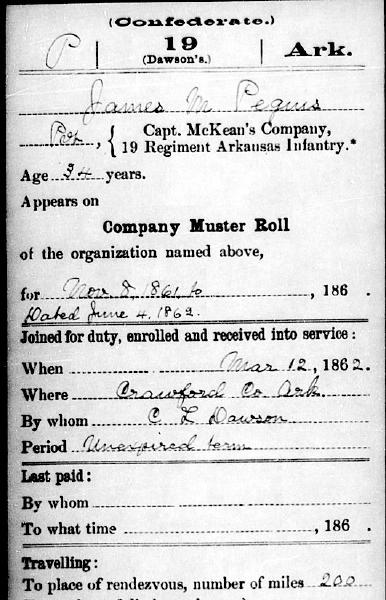 (Confederate.)
P
19
(Dawson's.)
Ark.
James M Pegues
Pvt, { Capt. McKean's Company,
19 Regiment Arkansas Infantry.*
Age 34 years.
Appears on
Company Muster Roll
of the organization named above,
for Nov 8, 1861, to , 186 .
Dated June 4, 1862.
Joined for duty, enrolled and received into service:
When Mar 12, 1862.
Where Crawford Co Ark.
By whom C L Dawson
Period Unexpired term
Last paid:
By whom
To what time , 186 .
Travelling:
To place of rendezvous, number of miles 200